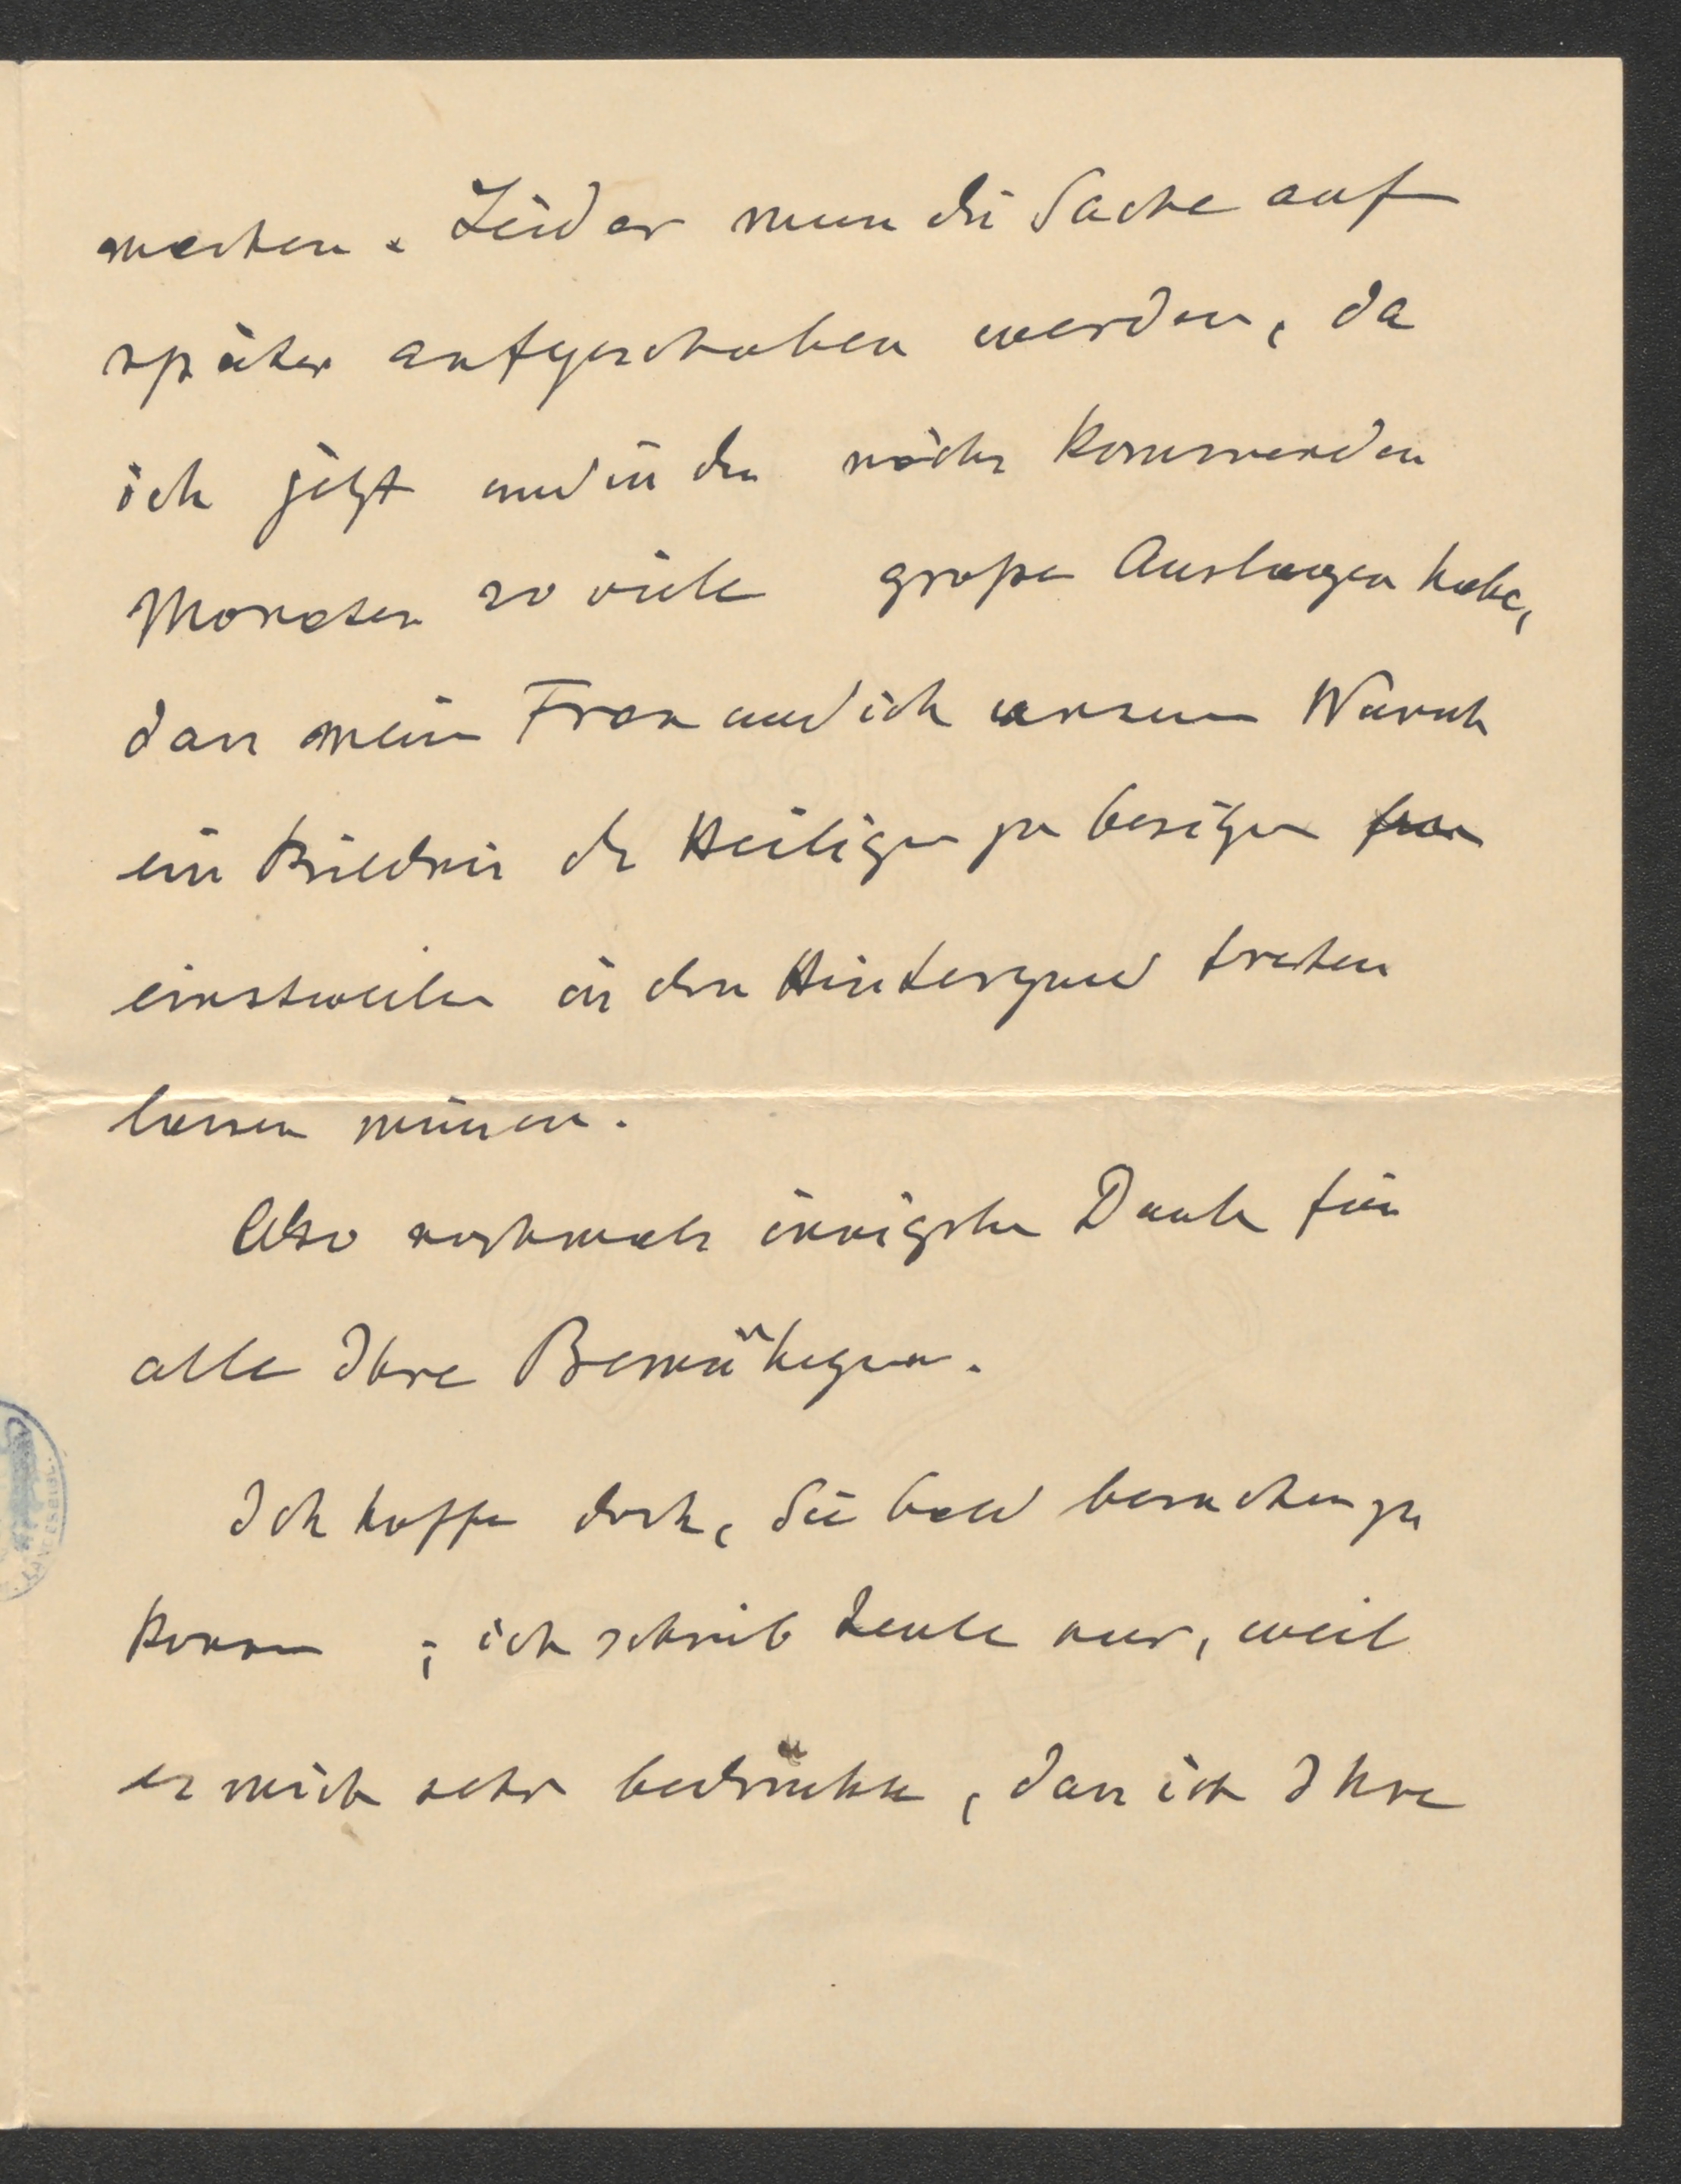 machen. Leider muss die Sache auf
später aufgeschoben werden, da
ich jetzt und in den nächst kommenden
Monaten so viele grosse Auslagen habe,
dass meine Frau und ich unseren Wunsch
ein Bildnis der Heiligen zu besitzen
einstweilen in den Hintergrund treten
lassen müssen.
Also nochmals innigsten Dank für
alle Ihre Bemühungen.
Ich hoffe doch, Sie bald besuchen zu
können; ich schrieb heute nur, weil
es mich sehr bedrückte, dass ich Ihre